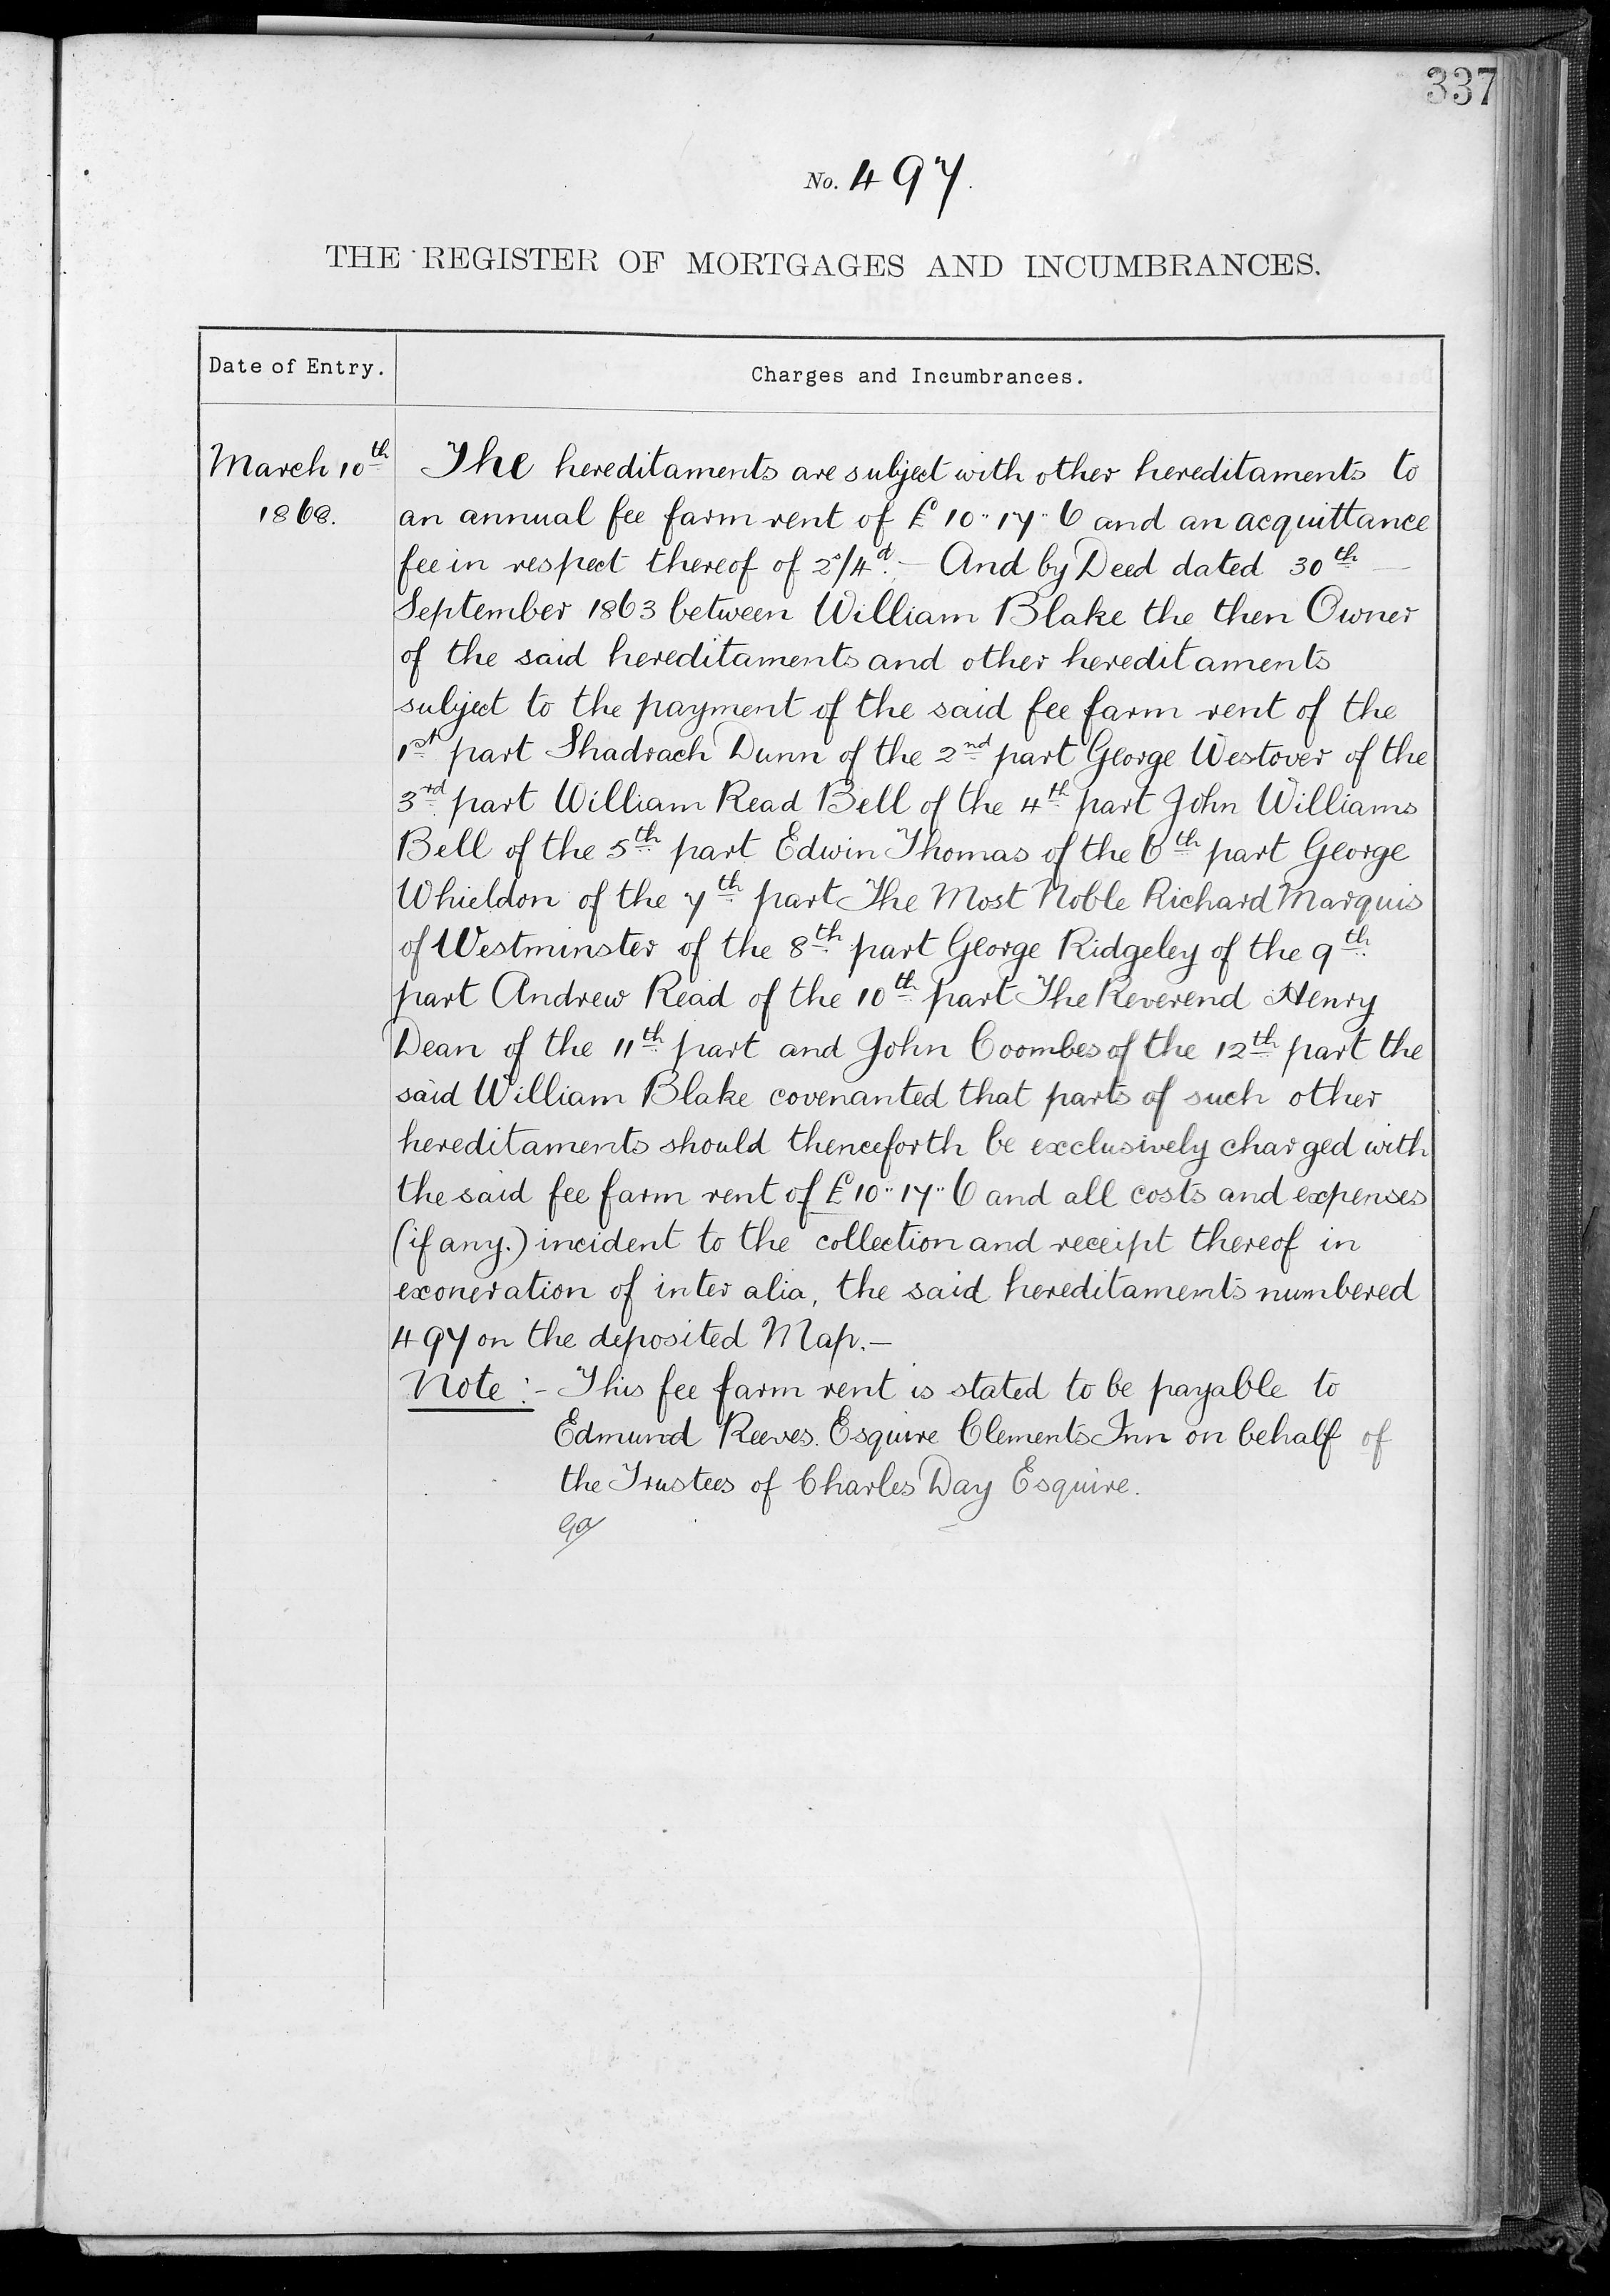 337
No. 497.
THE REGISTER OF MORTGAGES AND INCUMBRANCES.
Date of Entry.
Charges and Incumbrances.
March 10th
1868.
The hereditaments are subject with other hereditaments to
an annual fee farm rent of £10"17"6 and an acquittance
fee in respect thereof of 2s/4d. — And by Deed dated 30th —
September 1863 between William Blake the then Owner
of the said hereditaments and other hereditaments
subject to the payment of the said fee farm rent of the
1st part Shadrach Dunn of the 2nd part George Westover of the
3rd part William Read Bell of the 4th part John Williams
Bell of the 5th part Edwin Thomas of the 6th part George
Whieldon of the 7th part The Most Noble Richard Marquis
of Westminster of the 8th part George Ridgeley of the 9th
part Andrew Read of the 10th part The Reverend Henry
Dean of the 11th part and John Coombes of the 12th part the
said William Blake covenanted that parts of such other
hereditaments should thenceforth be exclusively charged with
the said fee farm rent of £10"17"6 and all costs and expenses
(if any.) incident to the collection and receipt thereof in
exoneration of inter alia, the said hereditaments numbered
497 on the deposited Map.—
Note:- This fee farm rent is stated to be payable to
Edmund Reeves. Esquire Clements Inn on behalf of
the Trustees of Charles Day Esquire.